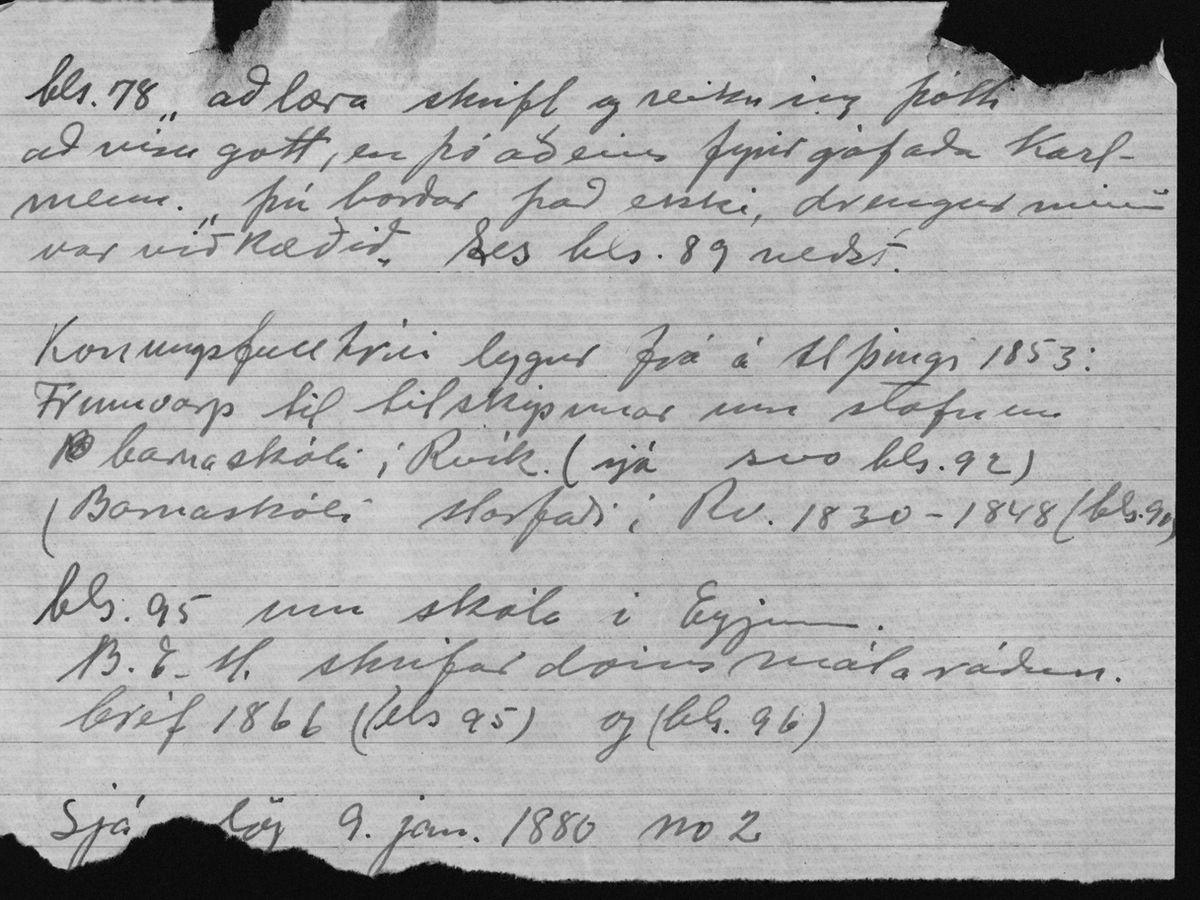 bls. 78 „að læra skrift og reikning þótti
að vísu gott, en þó aðeins fyrir gáfaða Karl-
menn. „þú borðar það ekki, drengur minn"
var viðkvæðið. Les bls. 89 neðst.
Konungsfulltrúi leggur frá á Alþingi 1853:
Frumvarp til tilskipunar um stofnun
barnaskóla í Rvík. (sjá svo bls. 92)
(Barnaskóli starfaði í Rv. 1830-1848 (bls. 90)
bls. 95 um skóla í Eyjum.
B. E. M. skrifar dómsmálaráðun.
bréf 1866 (bls 95) og (bls. 96)
Sjá lög 9. jan. 1880 no 2